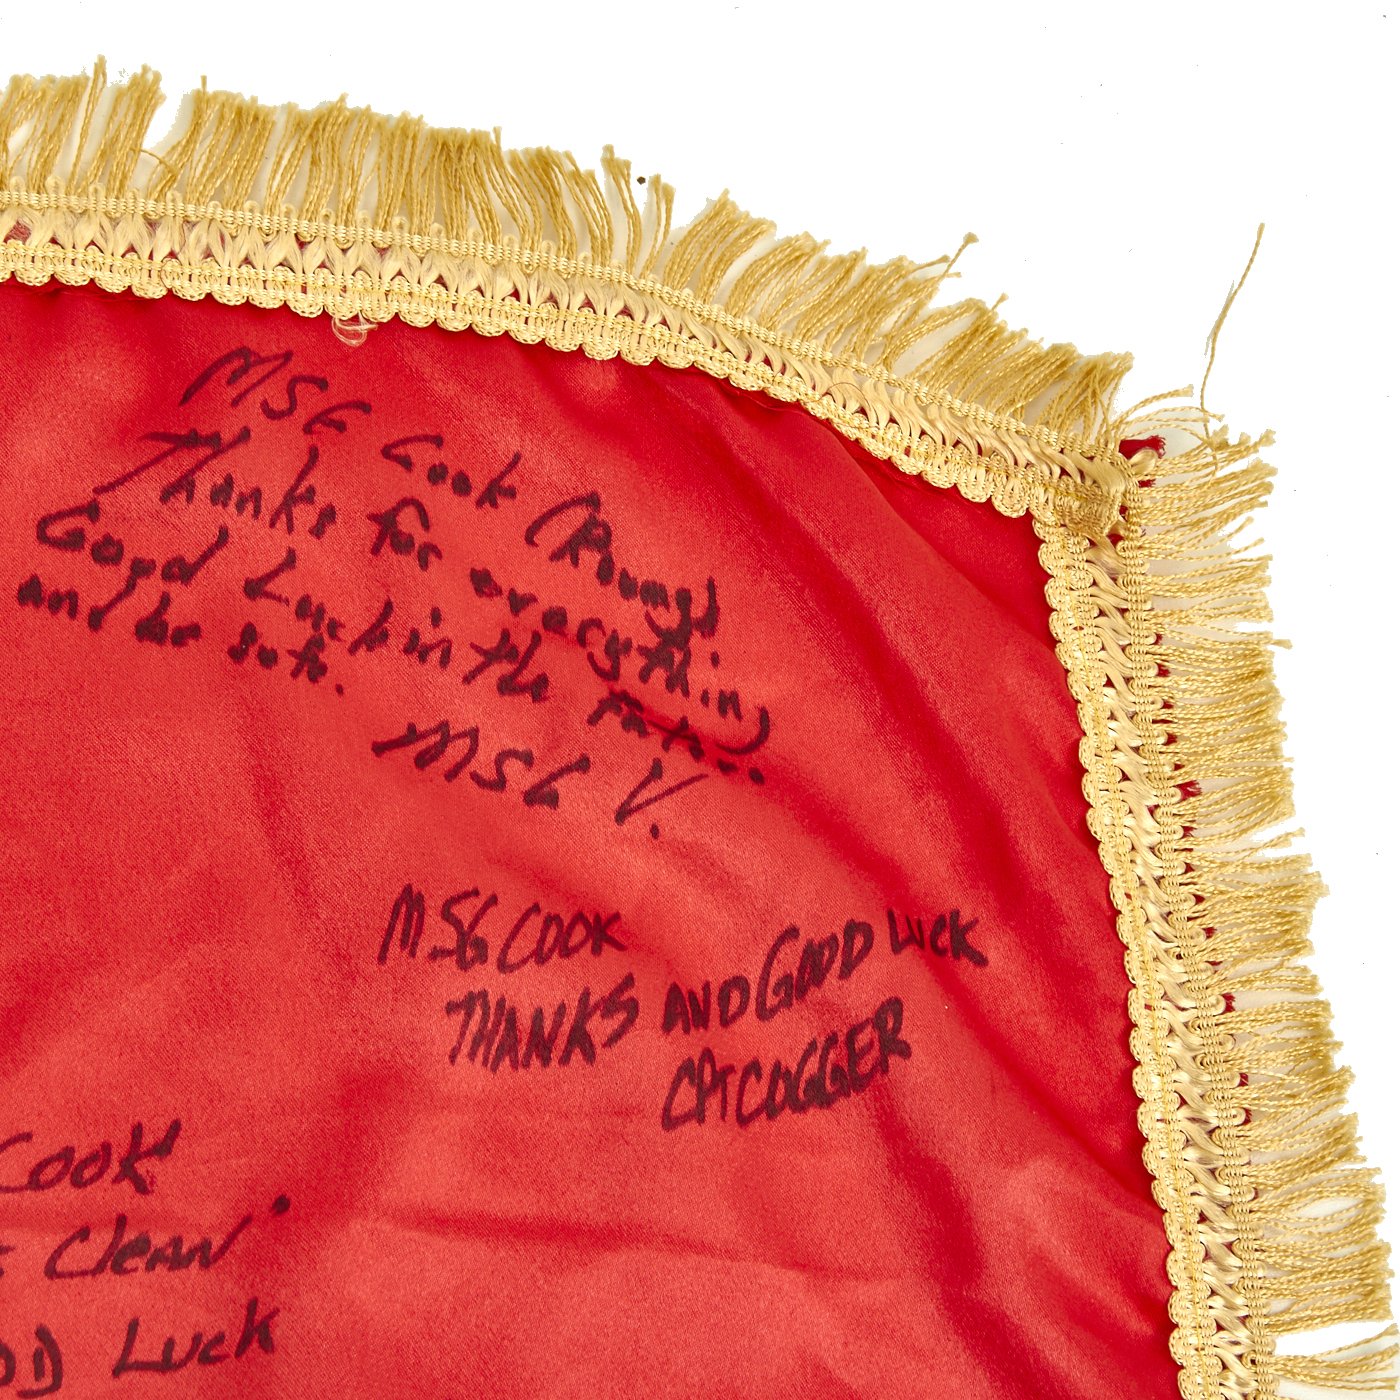 MSG Cook (Round)
Thanks for everything
Good Luck in the Future.
and be safe.
MSG V.
MSG COOK
THANKS AND GOOD LUCK
CPT COGGER
COOK
Clean"
Luck